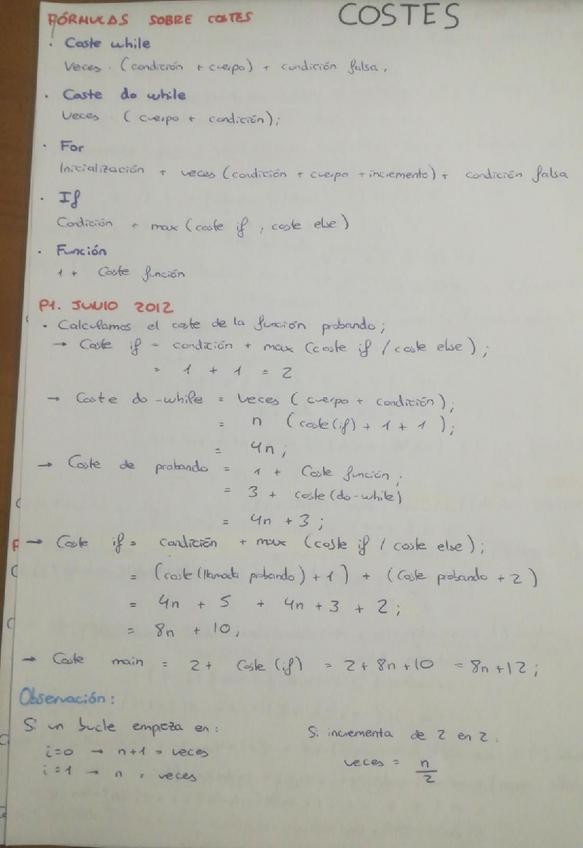 COSTES
FÓRMULAS SOBRE COSTES
· Coste while
Veces · (condición + cuerpo) + condición falsa.
· Coste do while
Veces · (cuerpo + condición);
· For
Inicialización + veces (condición + cuerpo + incremento) + condición falsa
· If
Condición + max (coste if, coste else)
· Función
1 + Coste función
P1. JUNIO 2012
· Calculamos el coste de la función probando;
→ Coste if = condición + max (coste if / coste else);
= 1 + 1 = 2
→ Coste do-while = veces (cuerpo + condición);
= n (coste(if) + 1 + 1);
= 4n;
→ Coste de probando = 1 + Coste función;
= 3 + coste(do-while)
= 4n + 3;
→ Coste if = condición + max (coste if / coste else);
= (coste(llamada probando) + 1) + (Coste probando + 2)
= 4n + 5 + 4n + 3 + 2;
= 8n + 10;
→ Coste main = 2 + Coste (if) = 2 + 8n + 10 = 8n + 12;
Observación:
Si un bucle empieza en:
i=0 → n+1 = veces
i=1 → n = veces
Si incrementa de 2 en 2.
veces = n/2